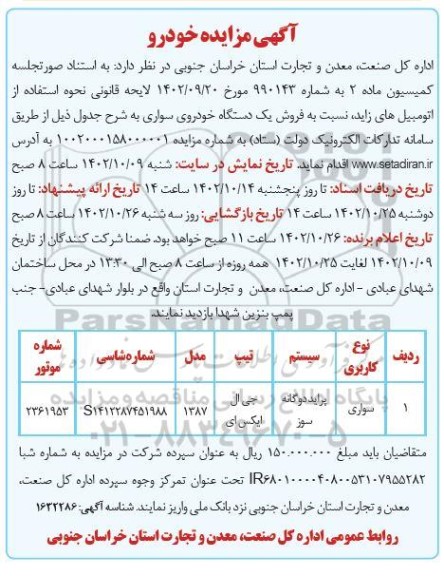 آگهی مزایده خودرو
اداره کل صنعت، معدن و تجارت استان خراسان جنوبی در نظر دارد: به استناد صورتجلسه
کمیسیون ماده ۲ به شماره ۹۹۰۱۴۳ مورخ ۱۴۰۲/۰۹/۲۰ لایحه قانونی نحوه استفاده از
اتومبیل های زاید، نسبت به فروش یک دستگاه خودروی سواری به شرح جدول ذیل از طریق
سامانه تدارکات الکترونیک دولت (ستاد) به شماره مزایده ۱۰۰۲۰۰۰۱۵۸۰۰۰۰۰۱ به آدرس
www.setadiran.ir اقدام نماید. تاریخ نمایش در سایت: شنبه ۱۴۰۲/۱۰/۰۹ ساعت ۸ صبح
تاریخ دریافت اسناد: تا روز پنجشنبه ۱۴۰۲/۱۰/۱۴ ساعت ۱۴ تاریخ ارائه پیشنهاد: تا روز
دوشنبه ۱۴۰۲/۱۰/۲۵ ساعت ۱۴ تاریخ بازگشایی: روز سه شنبه ۱۴۰۲/۱۰/۲۶ ساعت ۸ صبح
تاریخ اعلام برنده: ۱۴۰۲/۱۰/۲۶ ساعت ۱۱ صبح خواهد بود. ضمنا شرکت کنندگان از تاریخ
۱۴۰۲/۱۰/۰۹ لغایت ۱۴۰۲/۱۰/۲۵ همه روزه از ساعت ۸ صبح الی ۱۳:۳۰ در محل ساختمان
شهدای عبادی - اداره کل صنعت، معدن و تجارت استان واقع در بلوار شهدای عبادی- جنب
پمپ بنزین شهدا بازدید نمایند.
ParsNamadData
ردیف نوع کاربری سیستم تیپ مدل شماره شاسی شماره موتور
۱ سواری پراید دوگانه سوز جی ال ایکس ای ۱۳۸۷ S۱۴۱۲۲۸۷۴۵۱۹۸۸ ۲۳۶۱۹۵۳
پایگاه اطلاع رسانی مناقصه و مزایده
۰۲۱-۸۸۳۴۹۶۷۰-۵
متقاضیان باید مبلغ ۱۵۰.۰۰۰.۰۰۰ ریال به عنوان سپرده شرکت در مزایده به شماره شبا
IR۶۸۰۱۰۰۰۰۴۰۸۰۰۵۳۱۰۷۹۵۵۲۸۲ تحت عنوان تمرکز وجوه سپرده اداره کل صنعت،
معدن و تجارت استان خراسان جنوبی نزد بانک ملی واریز نمایند. شناسه آگهی: ۱۶۳۲۲۸۶
روابط عمومی اداره کل صنعت، معدن و تجارت استان خراسان جنوبی